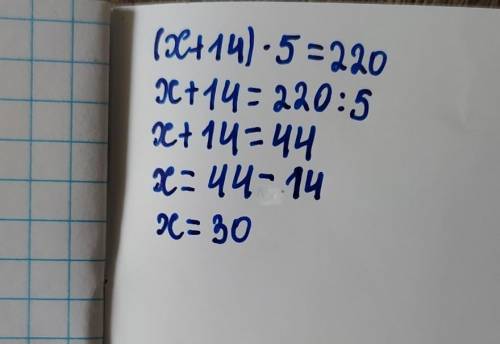 (x+14)·5=220
x+14=220:5
x+14=44
x=44-14
x=30